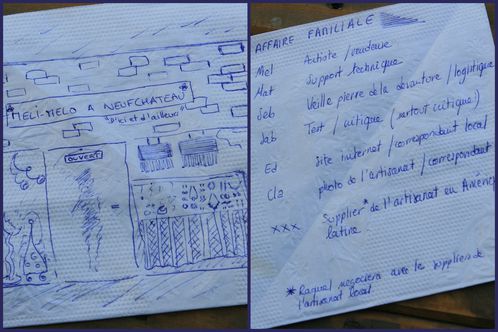 MELI-MELO A NEUFCHATEAU
"D'ici et d'ailleurs"
OUVERT
AFFAIRE FAMILIALE
Mel Artiste / vendeuse
Mat Support technique
Seb Veille pierre de la devanture / logistique
Jab Test / critique (surtout critique)
Ed site internet / correspondant local
Cla photo de l'artisanat / correspondant
xxx Supplier* de l'artisanat en Amérique
latine.
* Raquel negociera avec les suppliers de
l'artisanat local.